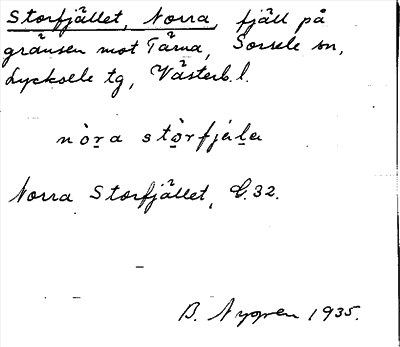 Storfjället, Norra, fjäll på
gränsen mot Tärna, Sorsele sn,
Lycksele tg, Västerb. l.
nòra stòrfjäla
Norra Storfjället, G. 32.
B. Nygren 1935.